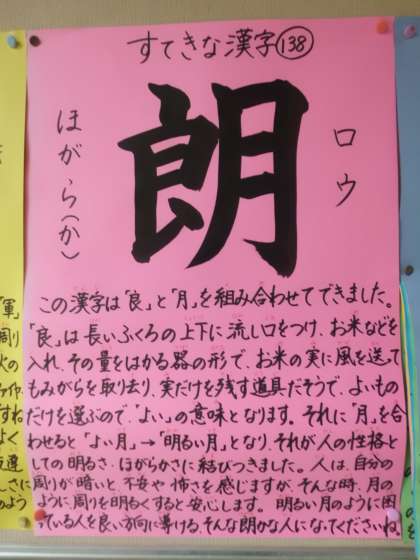 すてきな漢字138
朗
ロウ
ほがら(か)
この漢字は「良」と「月」を組み合わせてできました。
「良」は長いふくろの上下に流し口をつけ、お米などを
入れ、その量をはかる器の形で、お米の実に風を送って
もみがらを取り去り、実だけを残す道具だそうで、よいもの
だけを選ぶので、「よい」の意味となります。それに「月」を合
わせると「よい月」→「明るい月」となり、それが人の性格と
しての明るさ、ほがらかさに結びつきました。人は、自分の
周りが暗いと、不安や怖さを感じますが、そんな時、月の
ように周りを明るくすると安心します。明るい月のように困
っている人を良い方向に導ける、そんな朗かな人になってくださいね。